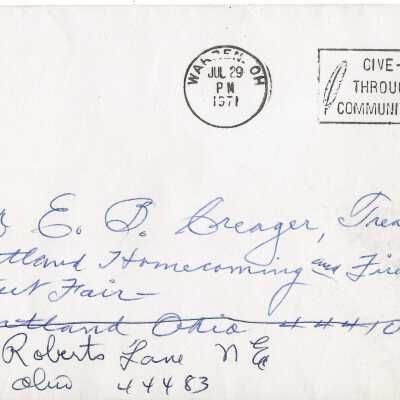 WARREN, OH
JUL 29
PM
1971
GIVE-
THROUG
COMMUNIT
r E. B. Creager, Trea
rtland Homecoming and Fire
eet Fair-
rtland Ohio 44410
Roberts Lane NE
Ohio 44483